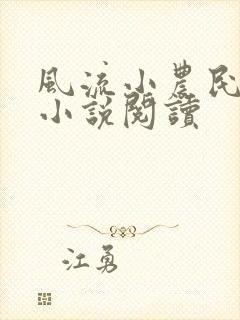 風流小農民
小說閱讀
江勇